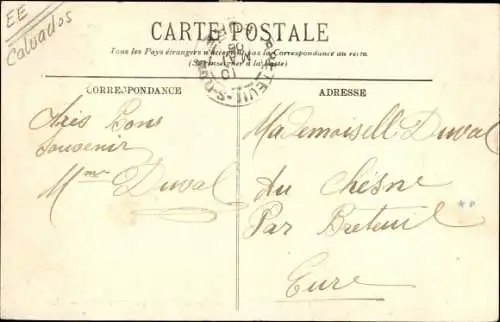 EE
Calvados
CARTE POSTALE
Tous les Pays étrangers n'acceptent pas la Correspondance au recto
(Se renseigner à la Poste)
CORRESPONDANCE
ADRESSE
Bons
souvenir
Mme Duval
Mademoisell Duval
Au Chesne
Par Breteuil
Eure